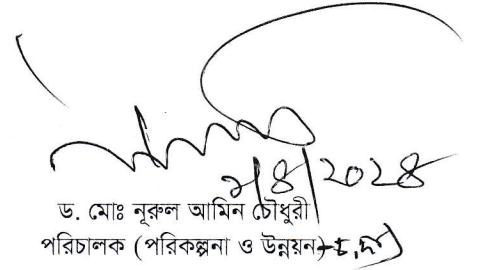 ২/৪/২০২৪
ড. মোঃ নূরুল আমিন চৌধুরী
পরিচালক (পরিকল্পনা ও উন্নয়ন)-চ.দা